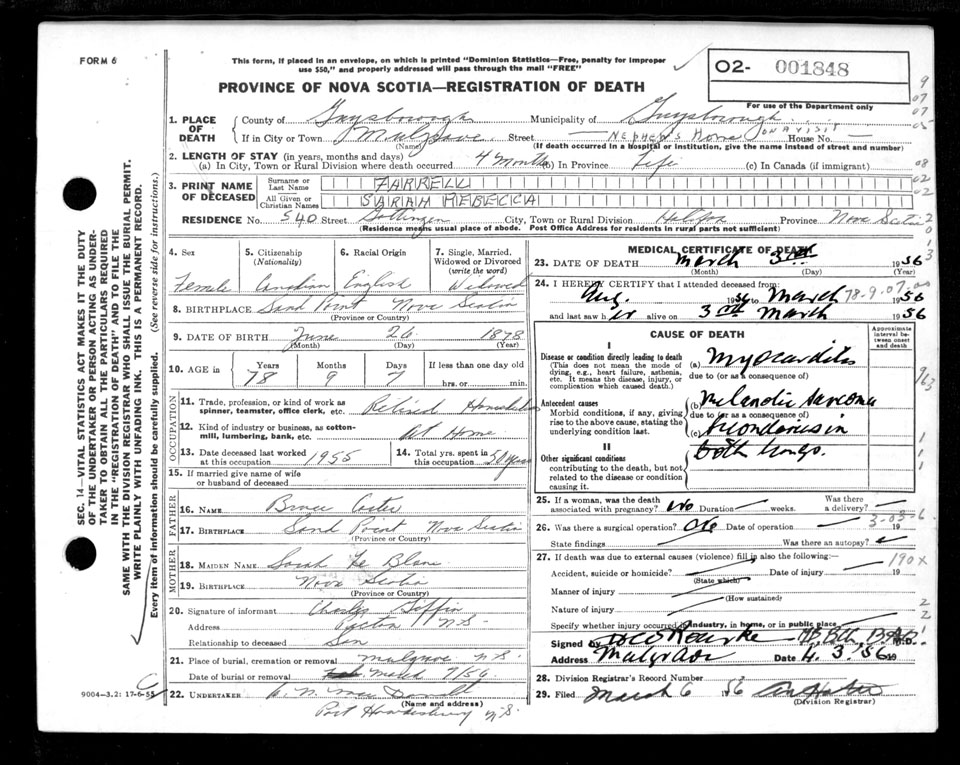 FORM 6
This form, if placed in an envelope, on which is printed "Dominion Statistics—Free, penalty for improper
use $50," and properly addressed will pass through the mail "FREE"
O2- 001848
For use of the Department only
PROVINCE OF NOVA SCOTIA—REGISTRATION OF DEATH
1. PLACE OF DEATH
County of Guysborough Municipality of Guysborough
If in City or Town Mulgrave Street NEPHEW'S HOME ON A VISIT House No.
(Name) (If death occurred in a hospital or institution, give the name instead of street and number)
2. LENGTH OF STAY (in years, months and days)
(a) In City, Town or Rural Division where death occurred 4 Months (b) In Province Life (c) In Canada (if immigrant)
3. PRINT NAME OF DECEASED
Surname or Last Name FARRELL
All Given or Christian Names SARAH REBECCA
RESIDENCE No. 540 Street Gottingen City, Town or Rural Division Halifax Province Nova Scotia
(Residence means usual place of abode. Post Office Address for residents in rural parts not sufficient)
4. Sex Female
5. Citizenship (Nationality) Canadian
6. Racial Origin English
7. Single, Married, Widowed or Divorced (write the word) Widowed
8. BIRTHPLACE Sand Point Nova Scotia
(Province or Country)
9. DATE OF BIRTH June 26 1878
(Month) (Day) (Year)
10. AGE in Years 78 Months 9 Days 7 If less than one day old hrs. or min.
OCCUPATION
11. Trade, profession, or kind of work as spinner, teamster, office clerk, etc. Retired
12. Kind of industry or business, as cotton-mill, lumbering, bank, etc. At Home
13. Date deceased last worked at this occupation 1955
14. Total yrs. spent in this occupation 50 years
15. If married give name of wife or husband of deceased
FATHER
16. NAME Bruce
17. BIRTHPLACE Sand Point Nova Scotia
(Province or Country)
MOTHER
18. MAIDEN NAME Sarah Le Blanc
19. BIRTHPLACE Nova Scotia
(Province or Country)
20. Signature of informant Charles
Address Pictou N.S.
Relationship to deceased Son
21. Place of burial, cremation or removal Mulgrave N.S.
Date of burial or removal March 7/56
22. UNDERTAKER
(Name and address)
Port Hawkesbury N.S.
9004-3.2: 17-6-55
SEC. 14—VITAL STATISTICS ACT MAKES IT THE DUTY
OF THE UNDERTAKER OR PERSON ACTING AS UNDER-
TAKER TO OBTAIN ALL THE PARTICULARS REQUIRED
IN THE "REGISTRATION OF DEATH" AND TO FILE THE
SAME WITH THE DIVISION REGISTRAR WHO SHALL ISSUE THE BURIAL PERMIT.
WRITE PLAINLY WITH UNFADING INK. THIS IS A PERMANENT RECORD.
Every item of information should be carefully supplied. (See reverse side for instructions.)
MEDICAL CERTIFICATE OF DEATH
23. DATE OF DEATH March 3rd 1956
(Month) (Day) (Year)
24. I HEREBY CERTIFY that I attended deceased from:
Aug. to March 1956
and last saw h er alive on 3rd March 1956
78-9-07
CAUSE OF DEATH
Approximate interval between onset and death
I
Disease or condition directly leading to death
(This does not mean the mode of dying, e.g., heart failure, asthenia, etc. It means the disease, injury, or complication which caused death.)
(a) Myocarditis
due to (or as a consequence of)
Antecedent causes
Morbid conditions, if any, giving rise to the above cause, stating the underlying condition last.
(b) Melanotic Sarcoma
due to (or as a consequence of)
(c)
II
Other significant conditions
contributing to the death, but not related to the disease or condition causing it.
both lungs.
25. If a woman, was the death associated with pregnancy? No Duration weeks. Was there a delivery?
26. Was there a surgical operation? Date of operation 19
State findings Was there an autopsy?
27. If death was due to external causes (violence) fill in also the following:—
Accident, suicide or homicide? Date of injury 19
(State which)
190X
Manner of injury
(How sustained)
Nature of injury
Specify whether injury occurred in industry, in home, or in public place
Signed by
Address Mulgrave Date 4. 3. 56
28. Division Registrar's Record Number
29. Filed March 6 56
(Division Registrar)